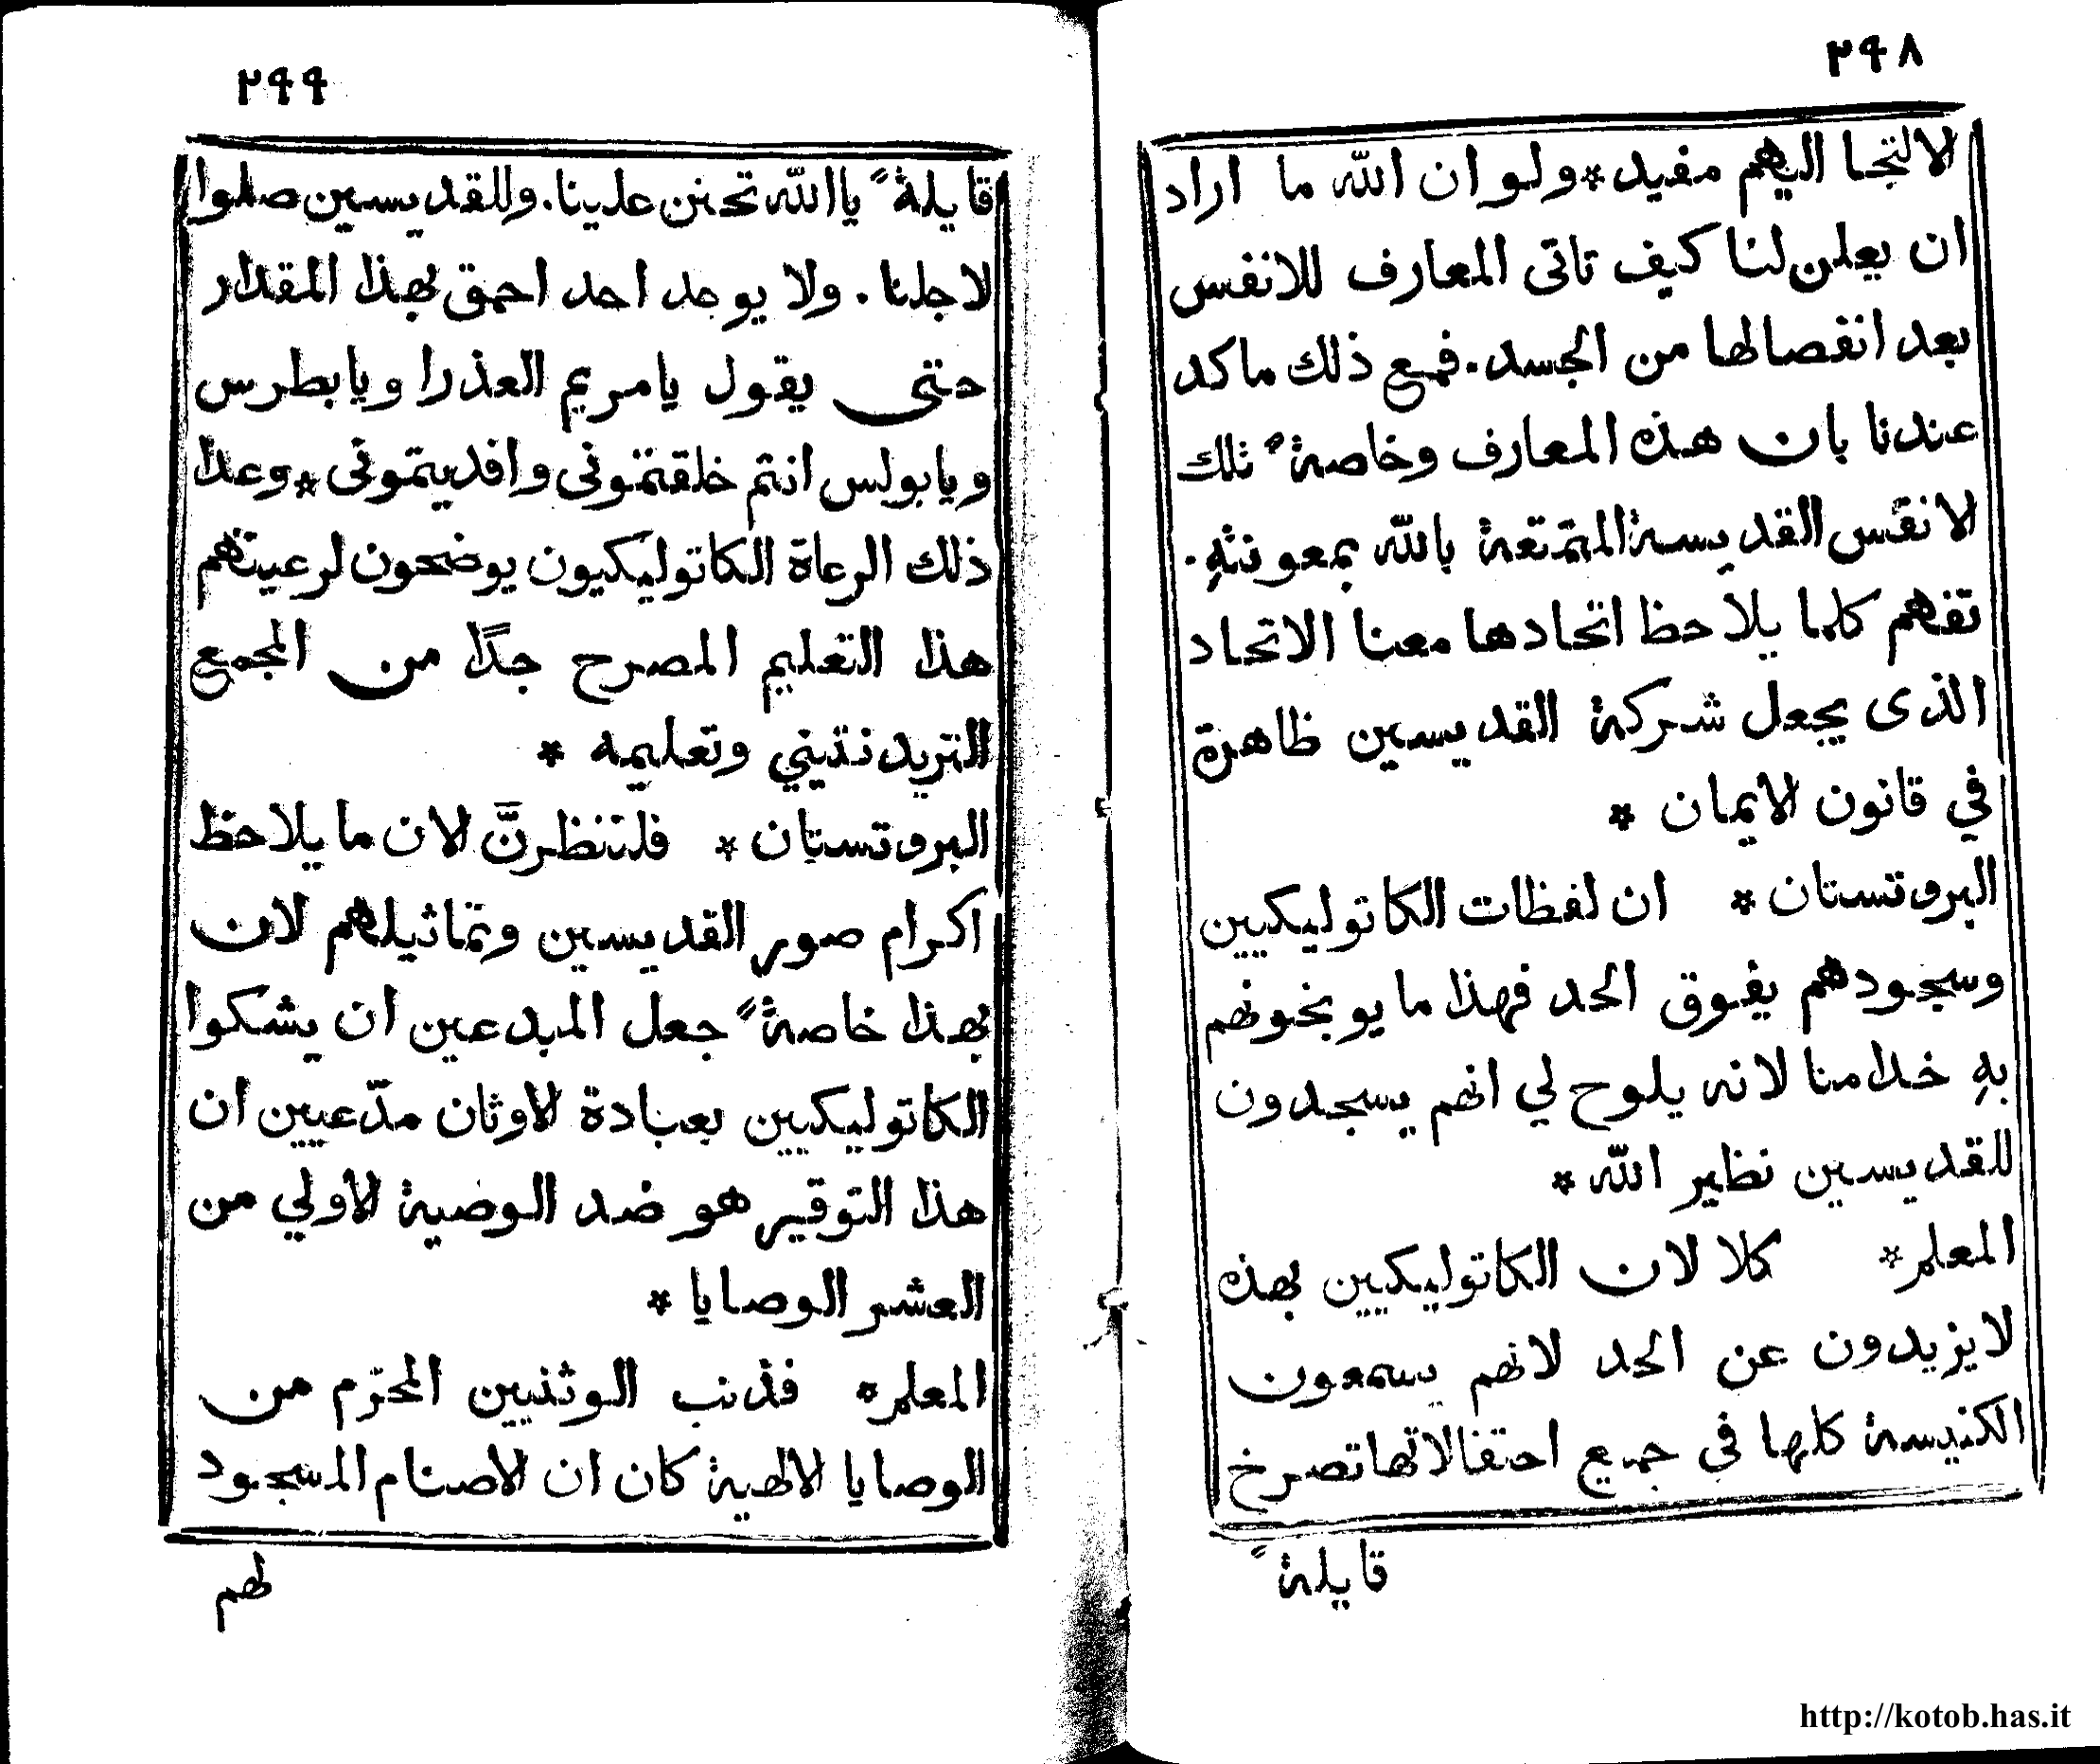 ٢٩٨
لالتجا اليهم مفيد * ولو ان الله ما اراد
ان يعلن لنا كيف تاتى المعارف للانفس
بعد انفصالها من الجسد. فمع ذلك ماكد
عندنا بان هذه المعارف وخاصةً تلك
الانفس القديسة المتمتعة بالله بمعونتهِ.
تفهم كلما يلاحظ اتحادها معنا الاتحاد
الذى يجعل شركة القديسين ظاهرة
في قانون الايمان *
البروتستان * ان لفظات الكاتوليكيين
وسجودهم يفوق الحد فهذا ما يوبخونهم
بهِ خدامنا لانه يلوح لي انهم يسجدون
للقديسين نظير الله *
المعلم * كلا لان الكاتوليكيين بهذه
لا يزيدون عن الحد لانهم يسمعون
الكنيسة كلها في جميع احتفالاتها تصرخ
قايلةً
٢٩٩
قايلةً يا الله تحنن علينا. وللقديسين صلوا
لاجلنا. ولا يوجد احد احمق بهذا المقدار
حتى يقول يا مريم العذرا ويا بطرس
ويا بولس انتم خلقتمونى وافديتمونى * وعدا
ذلك الرعاة الكاتوليكيون يوضحون لرعيتهم
هذا التعليم المصرح جدًا من المجمع
التريدنتيني وتعليمه *
البروتستان * فلننظرنَّ الان ما يلاحظ
اكرام صور القديسين وتماثيلهم لان
بهذا خاصةً جعل المبدعين ان يشكوا
الكاتوليكيين بعبادة الاوثان مدّعيين ان
هذا التوقير هو ضد الوضية الاولي من
العشر الوصايا *
المعلم * فذنب الوثنيين المحرّم من
الوصايا الالهية كان ان الاصنام المسجود
لهم
http://kotob.has.it